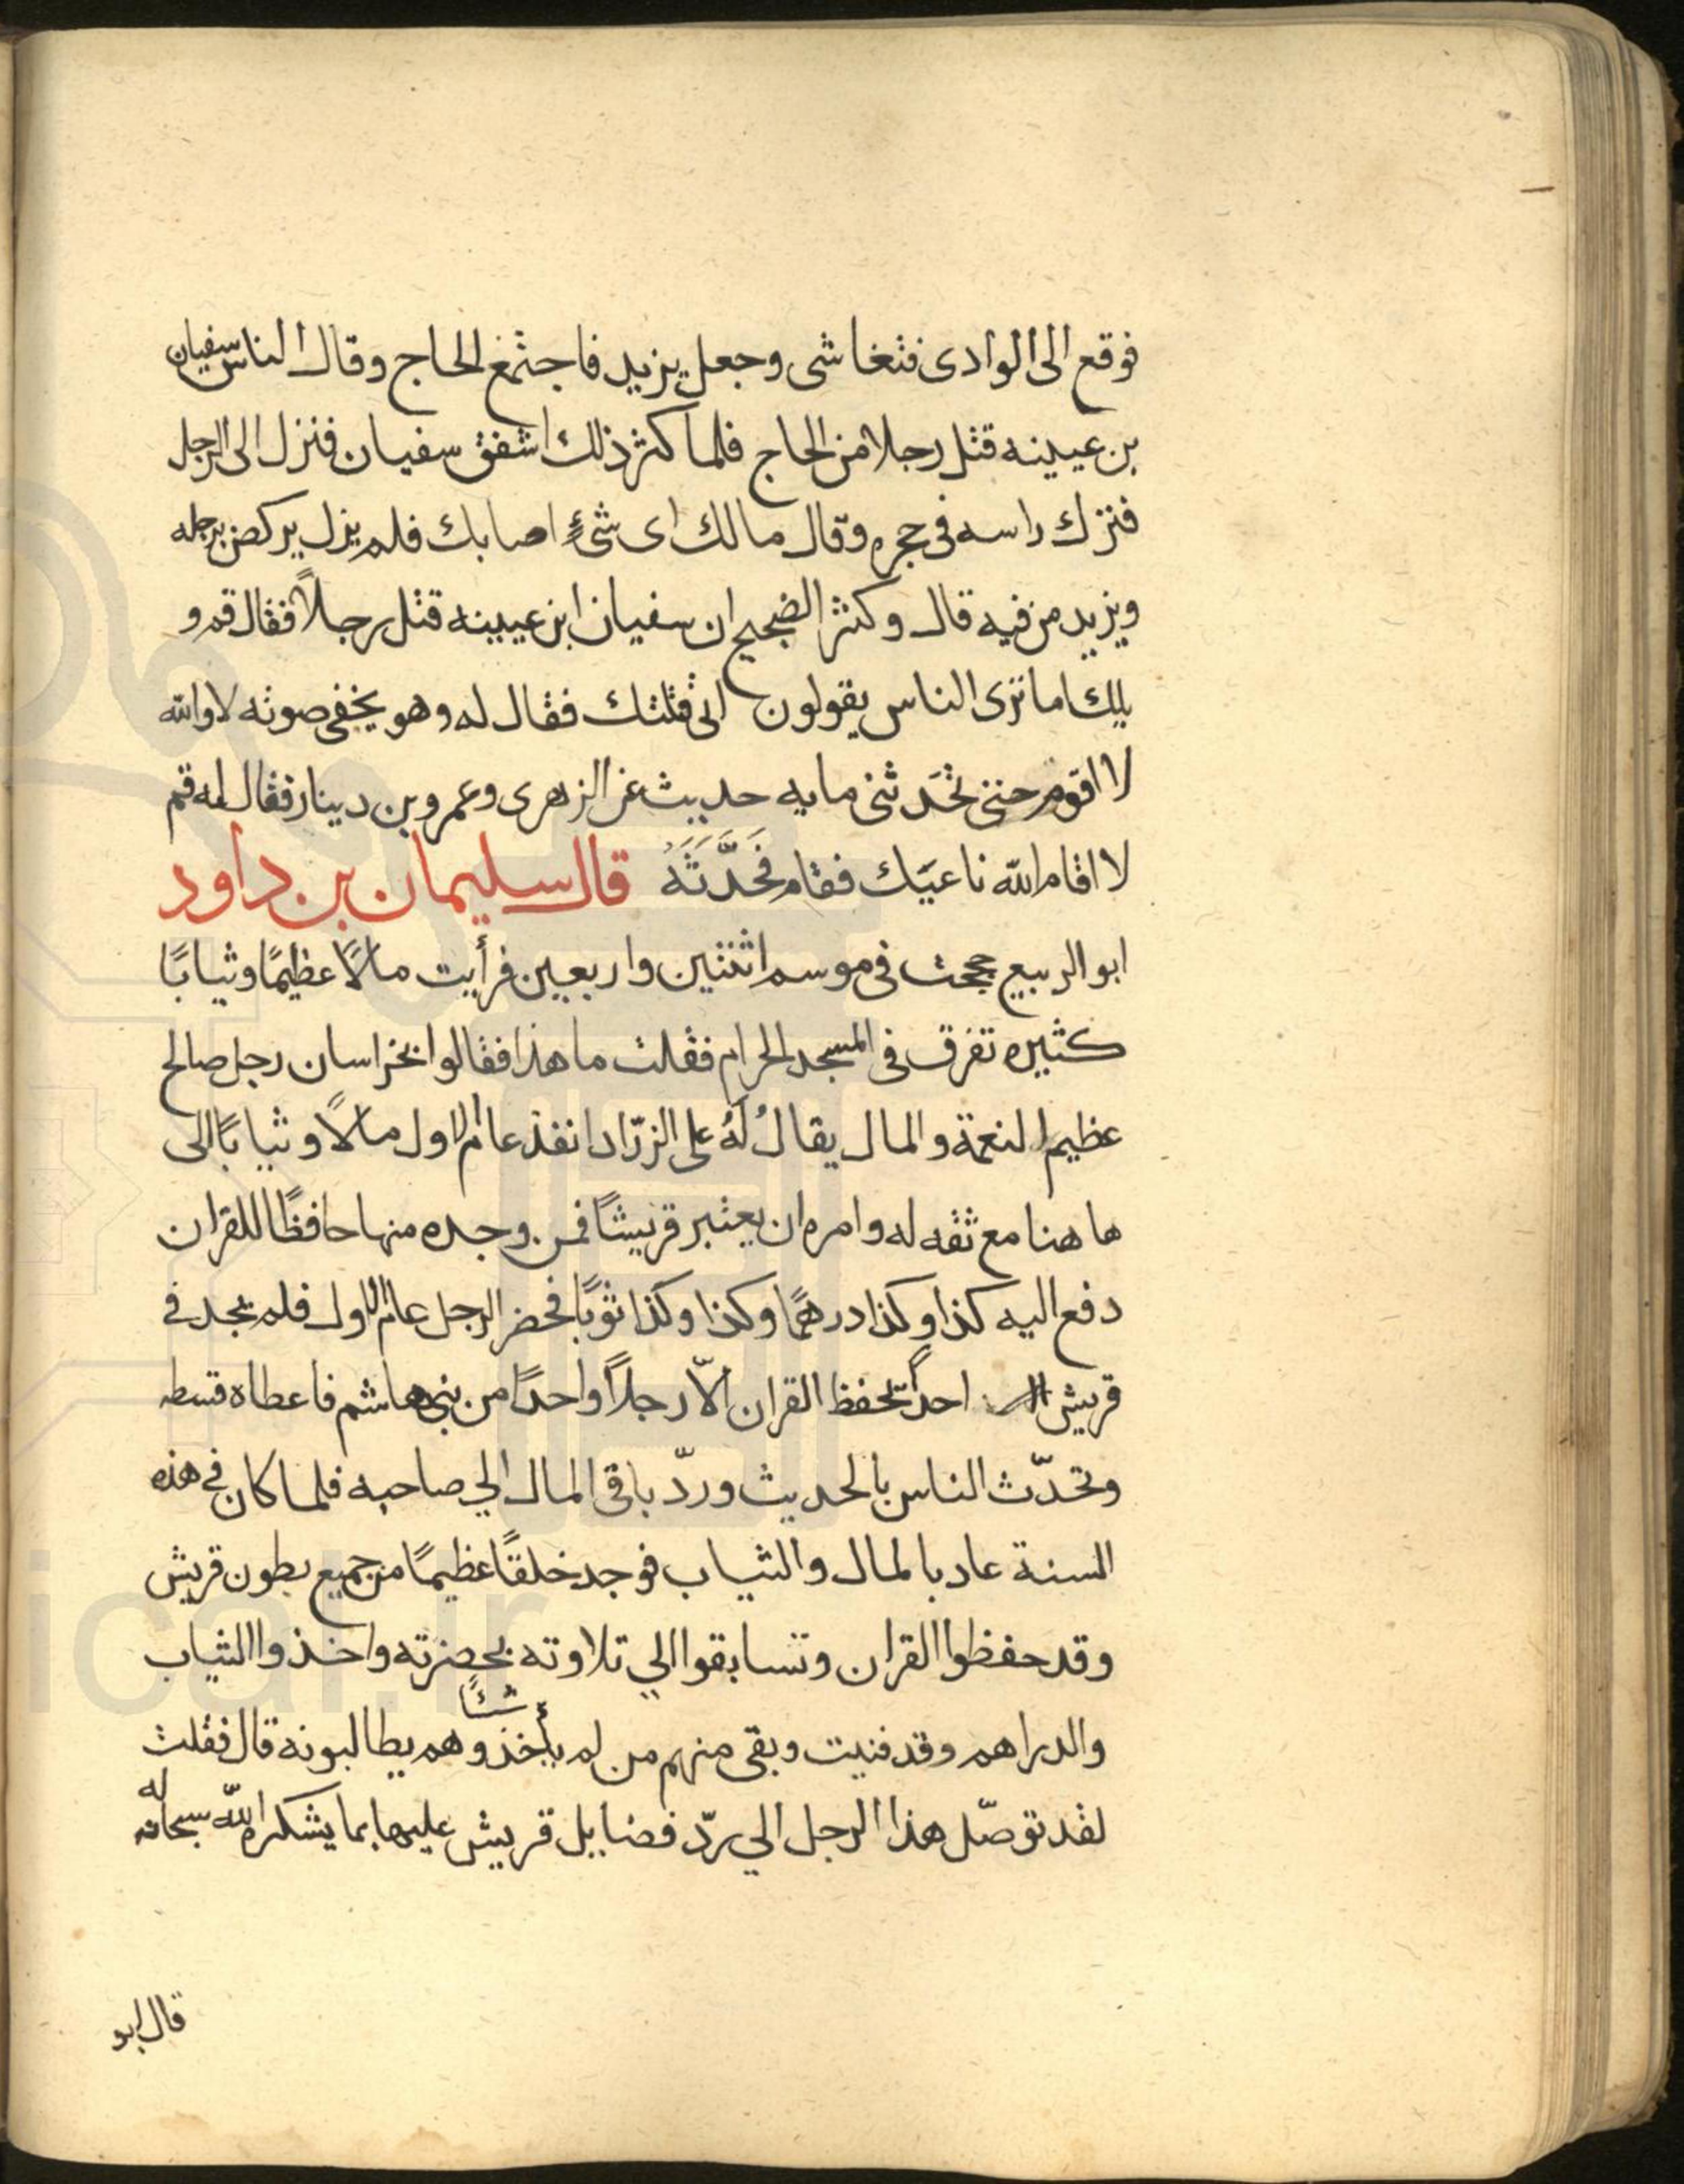 فوقع الى الوادى فتغاشى وجعل يزبد فاجتمع الحاج وقال الناس سفيان
بن عيينه قتل رجلا من الحاج فلما كثر ذلك اشفق سفيان فنزل الى الرجل
فترك راسه فى حجره وقال مالك اى شئٍ اصابك فلم يزل يركض برجله
ويزبد من فيه قال وكثر الضجيج ان سفيان ابن عيينه قتل رجلاً فقال قم و
يلك اما ترى الناس يقولون انى قتلتك فقال له وهو يخفى صوته لا والله
لا اقوم حتى تحَدثنى مايه حديث عن الزهرى وعمرو بن دينار فقال له قم
لا اقام الله ناعيَك فقام فَحَدَّثَهُ قال سليمان بن داود
ابو الربيع حججت فى موسم اثنتين واربعين فرأيت مالاً عظيمًا وثيابًا
كثيره تفرق فى المسجد الحرام فقلت ما هذا فقالوا بخراسان رجل صالح
عظيم النعمة والمال يقالُ لَهُ على الزرّاد انفذ عام الاول مالاً وثيابًا الى
هاهنا مع ثقه له وامره ان يعتبر قريشًا فمن وجده منها حافظًا للقران
دفع اليه كذا وكذا درهمًا وكذا وكذا ثوبًا فحضر الرجل عام الاول فلم يجد فى
قريش احدًا يحفظ القران الاّ رجلاً واحدًا من بنى هاشم فاعطاه قسطه
وتحدّث الناس بالحديث وردّ باقى المال الي صاحبه فلما كان فى هذه
السنة عاد بالمال والثياب فوجد خلقًا عظيمًا من جميع بطون قريش
وقد حفظوا القران وتسابقوا الي تلاوته بحضرته واخذوا الثياب
والدراهم وقد فنيت وبقى منهم من لم يأخذ شئًا وهم يطالبونه قال فقلت
لقد توصّل هذا الرجل الي ردّ فضايل قريش عليها بما يشكره الله سبحانه له
قال ابو